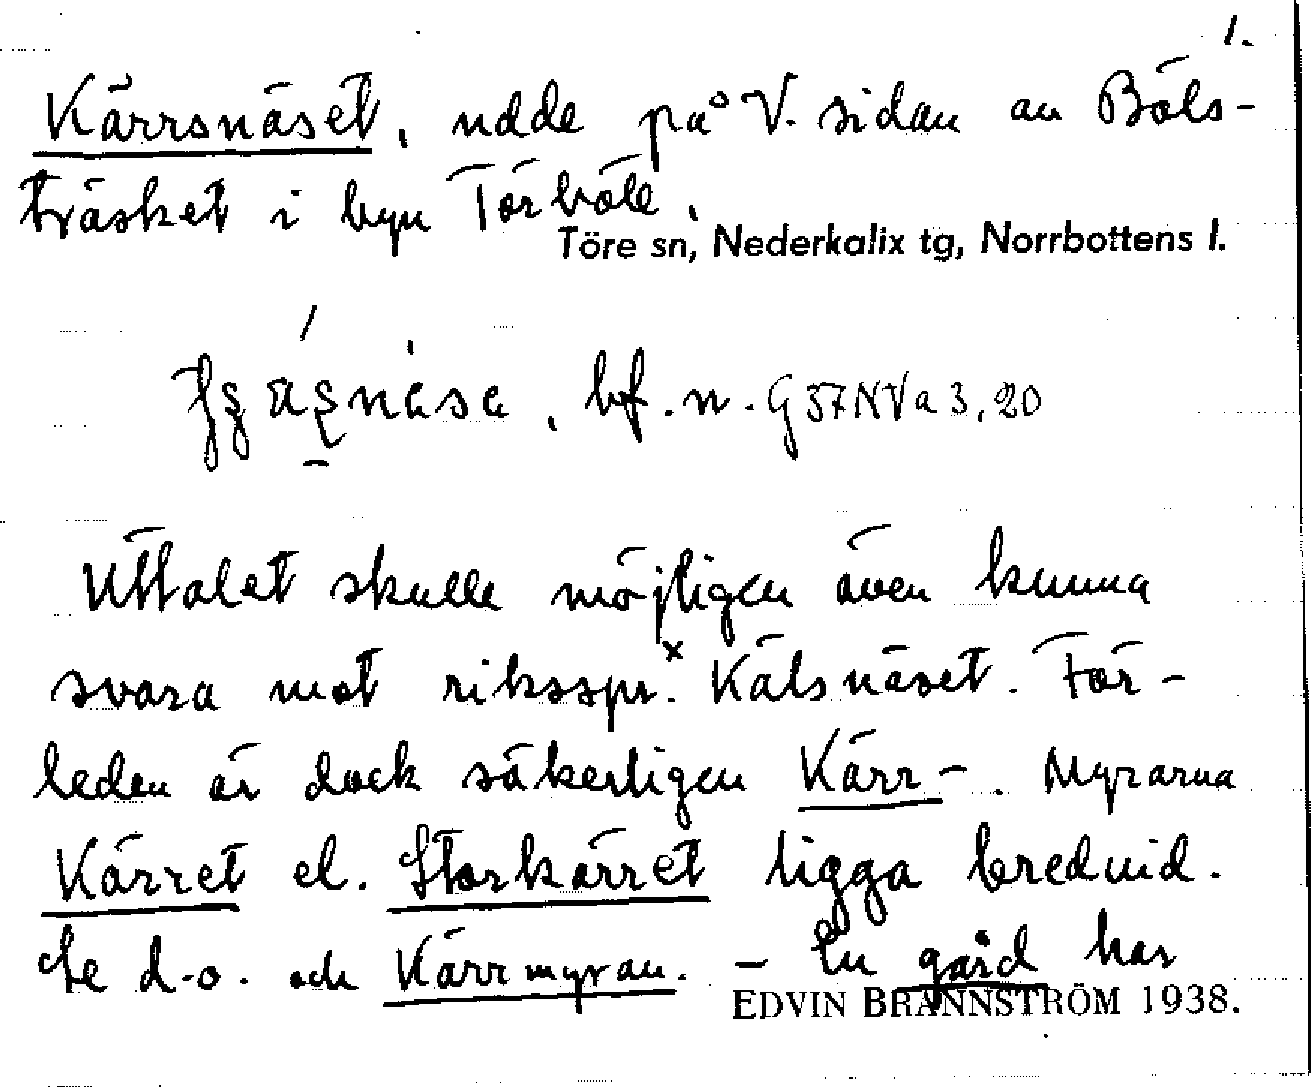 1.
Kärrsnäset, udde på V. sidan av Böls-
träsket i byn Törböle.
Töre sn, Nederkalix tg, Norrbottens l.
bf. n. G37NVa3,20
Uttalet skulle möjligen även kunna
svara mot riksspr. ×Kälsnäset. För-
leden är dock säkerligen Kärr-. Myrarna
Kärret el. Storkärret ligga bredvid.
Se d.o. och Kärrmyran. – En gård har
EDVIN BRÄNNSTRÖM 1938.